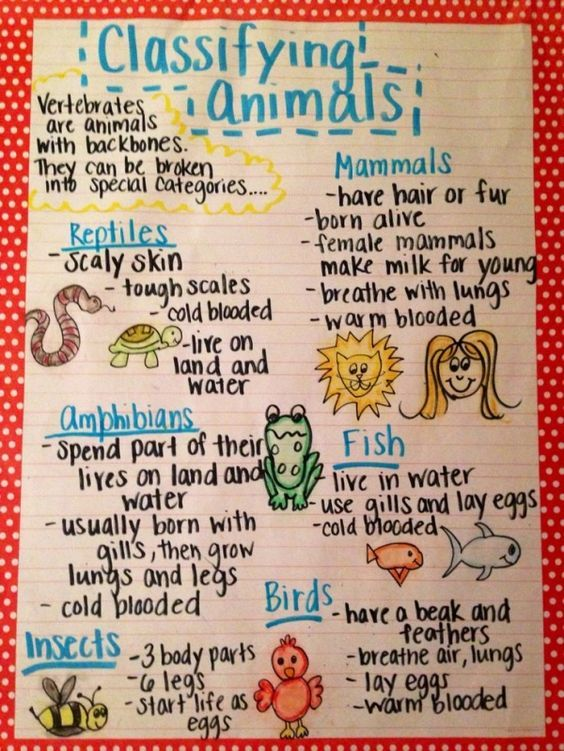 Classifying
animals
Vertebrates
are animals
with backbones.
They can be broken
into special categories....
Mammals
-have hair or fur
-born alive
-female mammals
make milk for young
-breathe with lungs
-warm blooded
Reptiles
-scaly skin
-tough scales
-cold blooded
-live on
land and
water
Amphibians
-spend part of their
lives on land and
water
-usually born with
gills, then grow
lungs and legs
- cold blooded
Fish
-live in water
-use gills and lay eggs
-cold blooded
Birds
-have a beak and
feathers
-breathe air, lungs
-lay eggs
-warm blooded
Insects
-3 body parts
-6 legs
-start life as
eggs